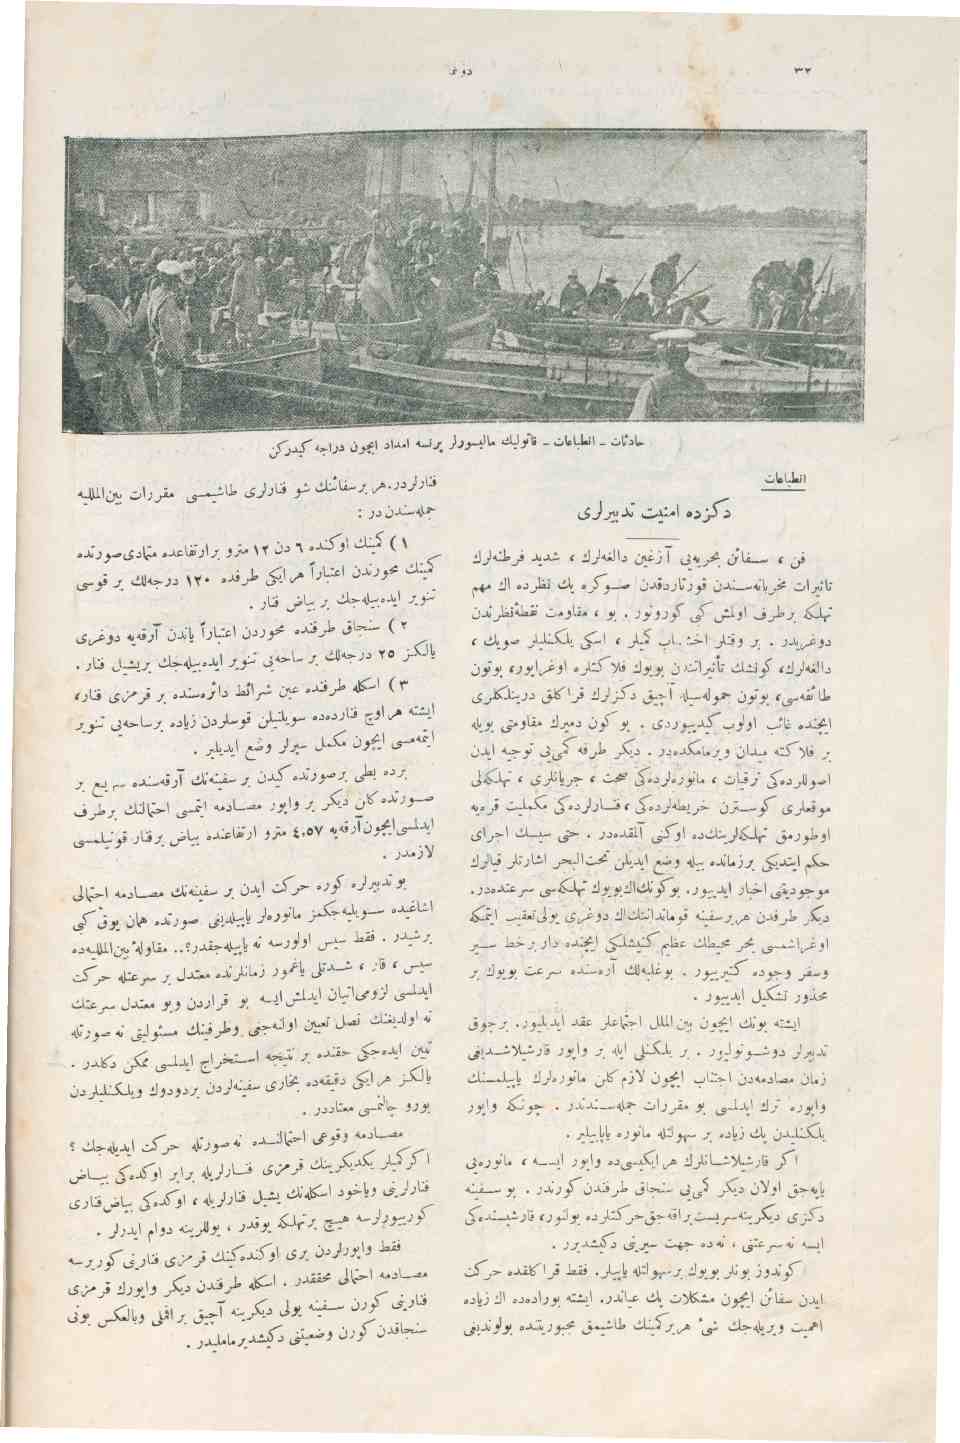 ٣٢
حادثات ـ انطباعات ـ قاتوليك ماليسورلر پرنسه امداد ايچون دراجه كيدركن
انطباعات
دكزده امنيت تدبيرلرى
فن ، سـفائن بحريه‌يى آزغين دالغه‌لرك ، شديد فرطنه‌لرك
تاثيرات مخربانه‌سـندن قورتاردقدن صـوكره پك نظرده اك مهم
تهلكه برطرف اولمش كى كورونور . بو ، مقاومت نقطهٔ نظرندن
دوغريدر . بر وقتلر اخشاب كميلر ، اسكى يلكنليلر صويك ،
دالغه‌لرك، كونشك تأثيراتندن بويوك فلاكتلره اوغرايور، بوتون
طائفه‌سى، بوتون حموله‌سيله آچيق دكزلرك قراكلق درينلكلرى
ايچنده غائب اولوب كيدييوردى . بو كون دميرك مقاومتى بويله
بر فلاكته ميدان ويرمامكده‌در . ديكر طرفه كمى‌يى توجيه ايدن
اصوللرده‌كى ترقيات ، مانوره‌لرده‌كى صحت ، جريانلرى ، تهلكه‌لى
موقعلرى كوسـترن خريطه‌لرده‌كى ، فنـارلرده‌كى مكمليت قره‌يه
اوطورمق تهلكه‌لرينك‌ده اوكنى آلمقده‌در . حتى سيسـك اجراى
حكم ايتديكى برزمانده بيله وضع ايديلن تحت‌البحر اشارتلر قيالرك
موجوديتى اخبار ايدييور. بوكونك‌اك‌بويوك تهلكه‌سى سرعتده‌در.
ديكر طرفدن هربرسفينه قوماندانتك‌اك دوغرى يولى‌تعقيب ايتمكه
اوغراشمسى بحر محيطك عظيم كنيشلكى ايچنده دار برخط سـير
وسفر وجوده كتيرييور . بوغلبه‌لك آره‌سنده سرعت بويوك بر
محذور تشكيل ايدييور .
ايشته بونك ايچون بين‌الملل اجتماعلر عقد ايديلييور. برچوق
تدبيرلر دوشـونولييور . بر يلكنلى ايله بر واپور قارشيلاشـديغى
زمان مصادمه‌دن اجتناب ايچون لازم كلن مانوره‌لرك ياپيلمسنك
واپوره ترك ايدلمسى بو مقررات جمله‌سـندندر . چونكه واپور
يلكنليدن پك زياده بر سهولتله مانوره ياپابيلير .
اكر قارشيلاشـانلرك هرايكيسى‌ده واپور ايسـه ، مانوره‌يى
ياپه‌جق اولان ديكر كمى‌يى سنجاق طرفندن كورندر . بو سـفينه
دكزى ديكرينه‌سربست براقه‌جق‌حركتلرده بولنور، قارشيسنده‌كى
ايسه نه سرعتنى ، نه‌ده جهت سيرينى دكيشديرر .
كوندوز بونلر بويوك برسهولتله ياپيلر. فقط قراكلقده حركت
ايدن سفائن ايچون مشكلات پك عياندر. ايشته بوراده‌ده اك زياده
اهميت ويريله‌جك شىٔ هربركمينك طاشيمق مجبوريتنده بولونديغى
فنارلردر.هر برسفائنك شو فنارلرى طاشيمسـى مقررات بين‌المللليه
جمله‌سندن در :
١ ( كمينك اوكنده ٦ دن ١٢ مترو برارتفاعده متمادى‌صورتده
كمينك محورندن اعتباراً هرايكى طرفده ١٢٠ درجه‌لك بر قوسى
تنوير ايده‌بيله‌جك بر بياض فنار .
٢ ( سنجاق طرفنده محوردن اعتباراً ياندن آرقه‌يه دوغرى
يالكـز ٢٥ درجه‌لك بر ساحه‌يى تنوير ايده‌بيله‌جك بريشيل فنار .
٣ ( اسكله طرفنده عين شرائط دائره‌سنده بر قرمزى فنار،
ايشته هراوچ فنارده‌ده سويلنيلن قوسلردن زياده برساحه‌يى تنوير
ايتمه‌مسى ايچون مكمل سپرلر وضع ايديلير .
برده بطى برصورتده كيدن بر سفينه‌نك آرقه‌سنده سريـع بر
صـورتده كلن ديكر بر واپور مصـادمه ايتمسى احتمالنك برطرف
ايدلمسى‌ايچون‌آرقه‌يه ٤،٥٧ مترو ارتفاعنده بياض برفنار قونيلمسى
لازمدر .
بو تدبيرلره كوره حركت ايدن بر سفينه‌نك مصـادمه احتمالى
اشاغيده سـويليه‌جكمز مانوره‌لر ياپيلديغى صورتده همان يوق كى
برشيدر . فقط سيس اولورسه نه ياپيله‌جقدر؟.. مقاولهٔ بين‌الملليه‌ده
سيس ، قار ، شـدتلى ياغمور زمانلرنده معتدل بر سرعتله حركت
ايدلمسى لزومى‌اتيان ايدلمش‌ايسه بو قراردن وبو معتدل سرعتك
نه اولديغنك نصل تعيين اولنه‌جغى وطرفينك مسئوليتى نه صورتله
تبين ايده‌جكى حقنده بر نتيجه اسـتخراج ايدلمسى ممكن دكلدر .
يالكـز هرايكى دقيقه‌ده بخارى سفينه‌لردن بردودوك ويلكنليلردن
بورو چالنمسى معتاددر .
مصـادمه وقوعى احتمالنـده نه صورتله حركت ايديله‌جك ؟
اكركميلر يكديكرينك قرمزى فنـارلريله برابر اوكده‌كى بيـاض
فنارلرينى وياخود اسكله‌نك يشيل فنارلريله ، اوكده‌كى بياض‌فنارى
كورييورلرسه هيچ برتهلكه يوقدر ، يوللرينه دوام ايدرلر .
فقط واپورلردن برى اوكنده‌كينك قرمزى فنارينى كوررسه
مصـادمه احتمالى محققدر . اسكله طرفندن ديكر واپورك قرمزى
فنارينى كورن سـفينه يولى ديكرينه آچيق براقملى وبالعكس بونى
سنجاقدن كورن وضعيتنى دكيشديرمامليدر .